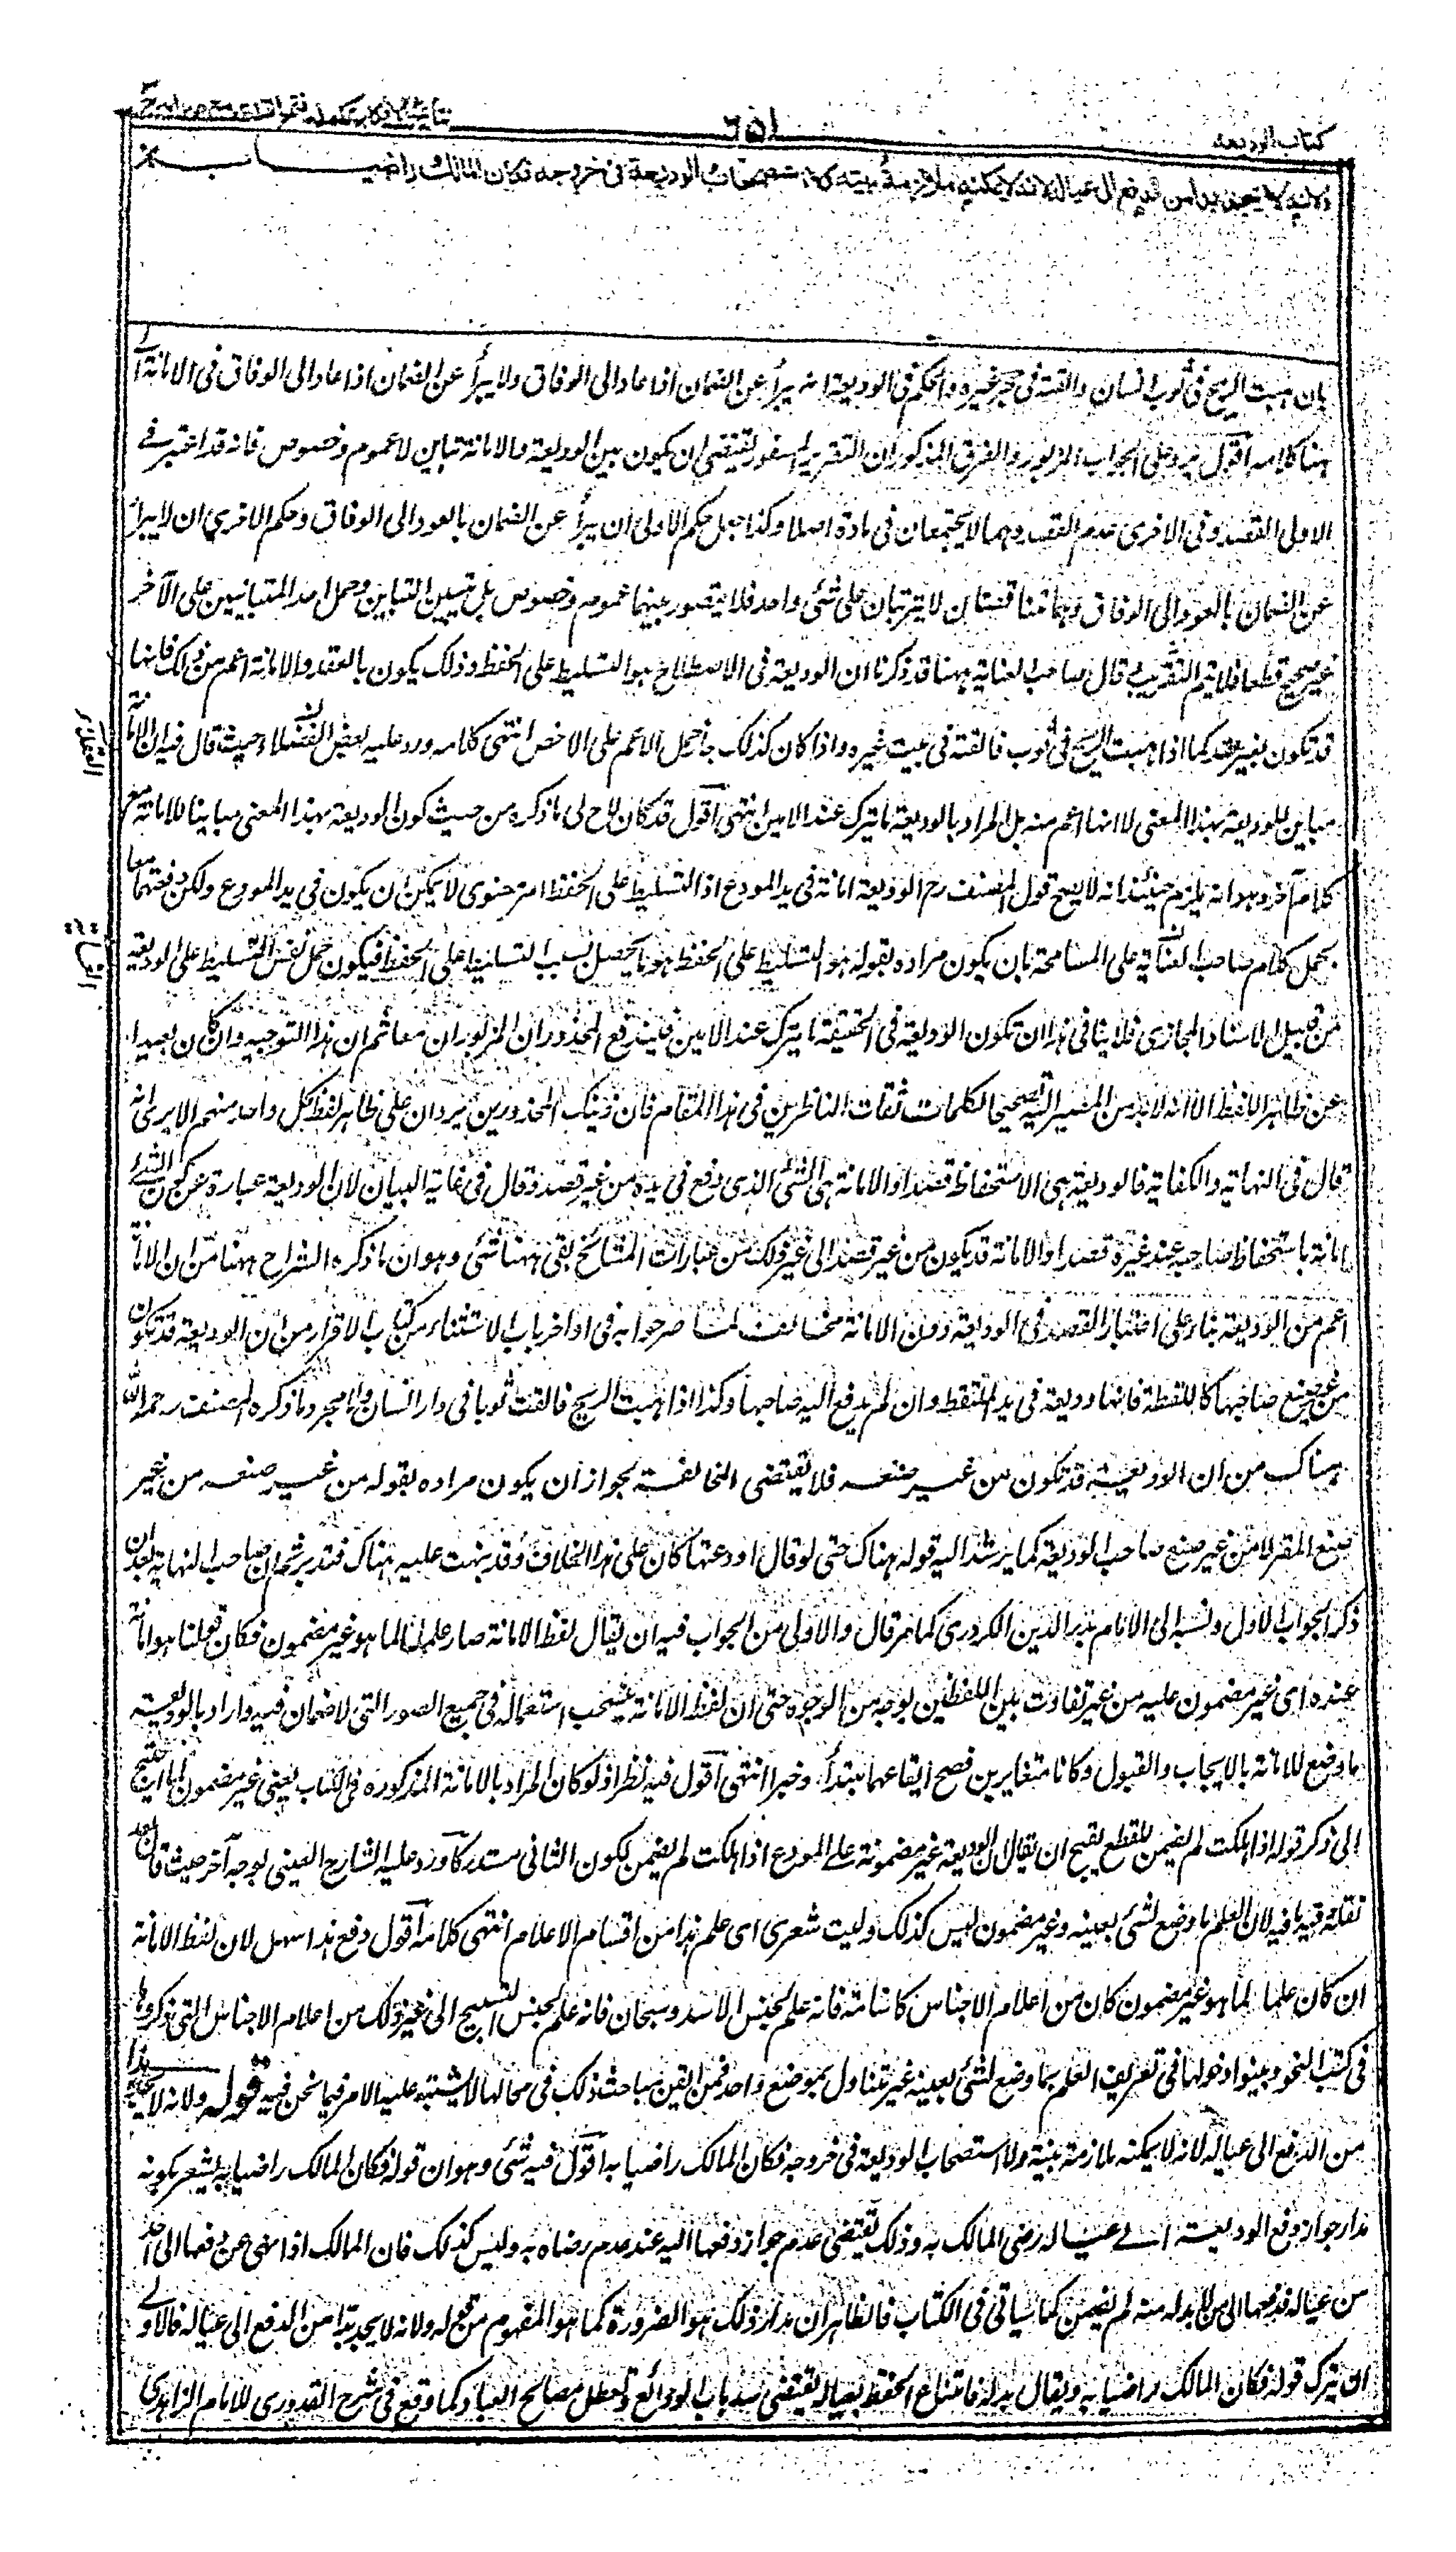 كتاب الوديعة
٦٥١
نتائج الافكار تكملة فتح القدير
ولانه لا يجد بدا من الدفع الى عياله لانه لا يمكنه ملازمة بيته ولا استصحاب الوديعة فى خروجه فكان المالك راضيا به
بان هبت الريح فى ثوب انسان والقته فى حجر غيره والحكم فى الوديعة انه يبرأ عن الضمان اذا عاد الى الوفاق ولا يبرأ عن الضمان اذا عاد الى الوفاق فى الامانة الى
هنا كلامه اقول يرد على الجواب المزبور والفرق المذكور ان التقرير المسفور يقتضى ان يكون بين الوديعة والامانة تباين لا عموم وخصوص فانه قد اعتبر فى
الاولى القصد وفى الاخرى عدم القصد وهما لا يجتمعان فى مادة اصلا وكذا جعل حكم الاولى ان يبرأ عن الضمان بالعود الى الوفاق وحكم الاخرى ان لا يبرأ
عن الضمان بالعود الى الوفاق وهما متناقضتان لا يترتبان على شئ واحد فلا يتصور بينهما عموم وخصوص بل تعين التباين وحمل احد المتباينين على الآخر
غير صحيح قطعا فلا يتم التقريب قال صاحب العناية ههنا قد ذكرنا ان الوديعة فى الاصطلاح هو التسليط على الحفظ وذلك يكون بالعقد والامانة اعم من ذلك فانها
قد تكون بغير عقد كما اذا هبت الريح فى ثوب فالقته فى بيت غيره واذا كان كذلك جاز حمل الاعم على الاخص انتهى كلامه ورد عليه بعض الفضلاء حيث قال فيه ان الامانة
مباين للوديعة بهذا المعنى لا انها اعم منه بل المراد بالوديعة ما يترك عند الامين انتهى اقول قد كان لاح لى ما ذكره من حيث كون الوديعة بهذا المعنى مباينا للامانة مع
كلام آخر وهو انه يلزم حينئذ انه لا يصح قول المصنف رح الوديعة امانة فى يد المودع اذ التسليط على الحفظ امر معنوى لا يمكن ان يكون فى يد المودع ولكن دفعتهما معا
بحمل كلام صاحب العناية على المسامحة بان يكون مراده بقوله هو التسليط على الحفظ هو ما يحصل بسبب التسليط على الحفظ فيكون حمل نفس التسليط على الوديعة
من قبيل الاسناد المجازى فلا ينافى هذا ان تكون الوديعة فى الحقيقة ما يترك عند الامين فيندفع المحذوران المزبوران معا ثم ان هذا التوجيه وان كان بعيدا
عن ظاهر اللفظ الا انه لا بد من المصير اليه تصحيحا لكلمات ثقات الناظرين فى هذا المقام فان ذينك المحذورين يردان على ظاهر لفظ كل واحد منهم الا يرى انه
قال فى النهاية والكفاية فالوديعة هى الاستحفاظ قصدا والامانة هى الشئ الذى وقع فى يده من غير قصد وقال فى غاية البيان لان الوديعة عبارة عن كون الشئ
امانة باستحفاظ صاحبه عند غيره قصدا والامانة قد يكون من غير قصد الى غير ذلك من عبارات المشائخ بقى ههنا شئ وهو ان ما ذكره الشراح ههنا من ان الامانة
اعم من الوديعة بناء على اعتبار القصد فى الوديعة دون الامانة مخالف لما صرحوا به فى اواخر باب الاستثناء من كتاب الاقرار من ان الوديعة قد تكون
من غير صنع صاحبها كاللقطة فانها وديعة فى يد الملتقط وان لم يدفع اليه صاحبها وكذا اذا هبت الريح فالقت ثوبا فى دار انسان واما مجرد ما ذكره المصنف رحمه الله
هناك من ان الوديعة قد تكون من غير صنعه فلا يقتضى المخالفة لجواز ان يكون مراده بقوله من غير صنعه من غير
صنع المقر لا من غير صنع صاحب الوديعة كما يرشد اليه قوله هناك حتى لو قال اودعتها كان على هذا الخلاف وقد نبهت عليه هناك فتدبر ثم ان صاحب النهاية بعد ان
ذكر الجواب الاول ونسبه الى الامام بدر الدين الكردرى كما مر قال والاولى من الجواب فيه ان يقال لفظ الامانة صار علما لما هو غير مضمون فكان قولنا هو امانة
عنده اى غير مضمون عليه من غير تفاوت بين اللفظين بوجه من الوجوه حتى ان لفظ الامانة ينسحب استعماله فى جميع الصور التى لا ضمان فيه واراد بالوديعة
ما وضع للامانة بالايجاب والقبول وكانا متغايرين فصح ايقاعهما مبتدأ وخبرا انتهى اقول فيه نظر اذ لو كان المراد بالامانة المذكورة فى الكتاب يعنى غير مضمون لما احتيج
الى ذكر قوله اذا هلكت لم يضمن للقطع بقبح ان يقال ان الوديعة غير مضمونة على المودع اذا هلكت لم يضمن لكون الثانى مستدركا ورد عليه الشارح العينى بوجه آخر حيث قال بعد
نقله قيه ما فيه لان العلم ما وضع لشئ بعينه وغير مضمون ليس كذلك وليت شعرى اى علم هذا من اقسام الاعلام انتهى كلامه اقول دفع هذا سهل لان لفظ الامانة
ان كان علما لما هو غير مضمون كان من اعلام الاجناس كاسامة فانه علم لجنس الاسد وسبحان فانه علم لجنس التسبيح الى غير ذلك من اعلام الاجناس التى ذكروها
فى كتب النحو وبينوا دخولها فى تعريف العلم بما وضع لشئ بعينه غير متناول بوضع واحد فمن اتقن مباحث ذلك فى محالها لا يشتبه عليه الامر فيما نحن فيه قوله ولانه لا يجد بدا
من الدفع الى عياله لانه لا يمكنه ملازمة بيته ولا استصحاب الوديعة فى خروجه فكان المالك راضيا به اقول فيه شئ وهو ان قوله فكان المالك راضيا به يشعر بكونه
مدار جواز دفع الوديعة الى عياله رضى المالك به وذلك يقتضى عدم جواز دفعها اليه عند عدم رضاه به وليس كذلك فان المالك اذا نهى عن دفعها الى احد
من عياله فدفعها الى من لا بد له منه لم يضمن كما سياتى فى الكتاب فالظاهر ان مدار ذلك هو الضرورة كما هو المفهوم من قوله ولانه لا يجد بدا من الدفع الى عياله فالاولى
ان يترك قوله فكان المالك راضيا به ويقال بدله فامتناع الحفظ بعياله يقتضى سد باب الودائع وتعطل مصالح العباد كما وقع فى شرح القدورى للامام الزاهدى